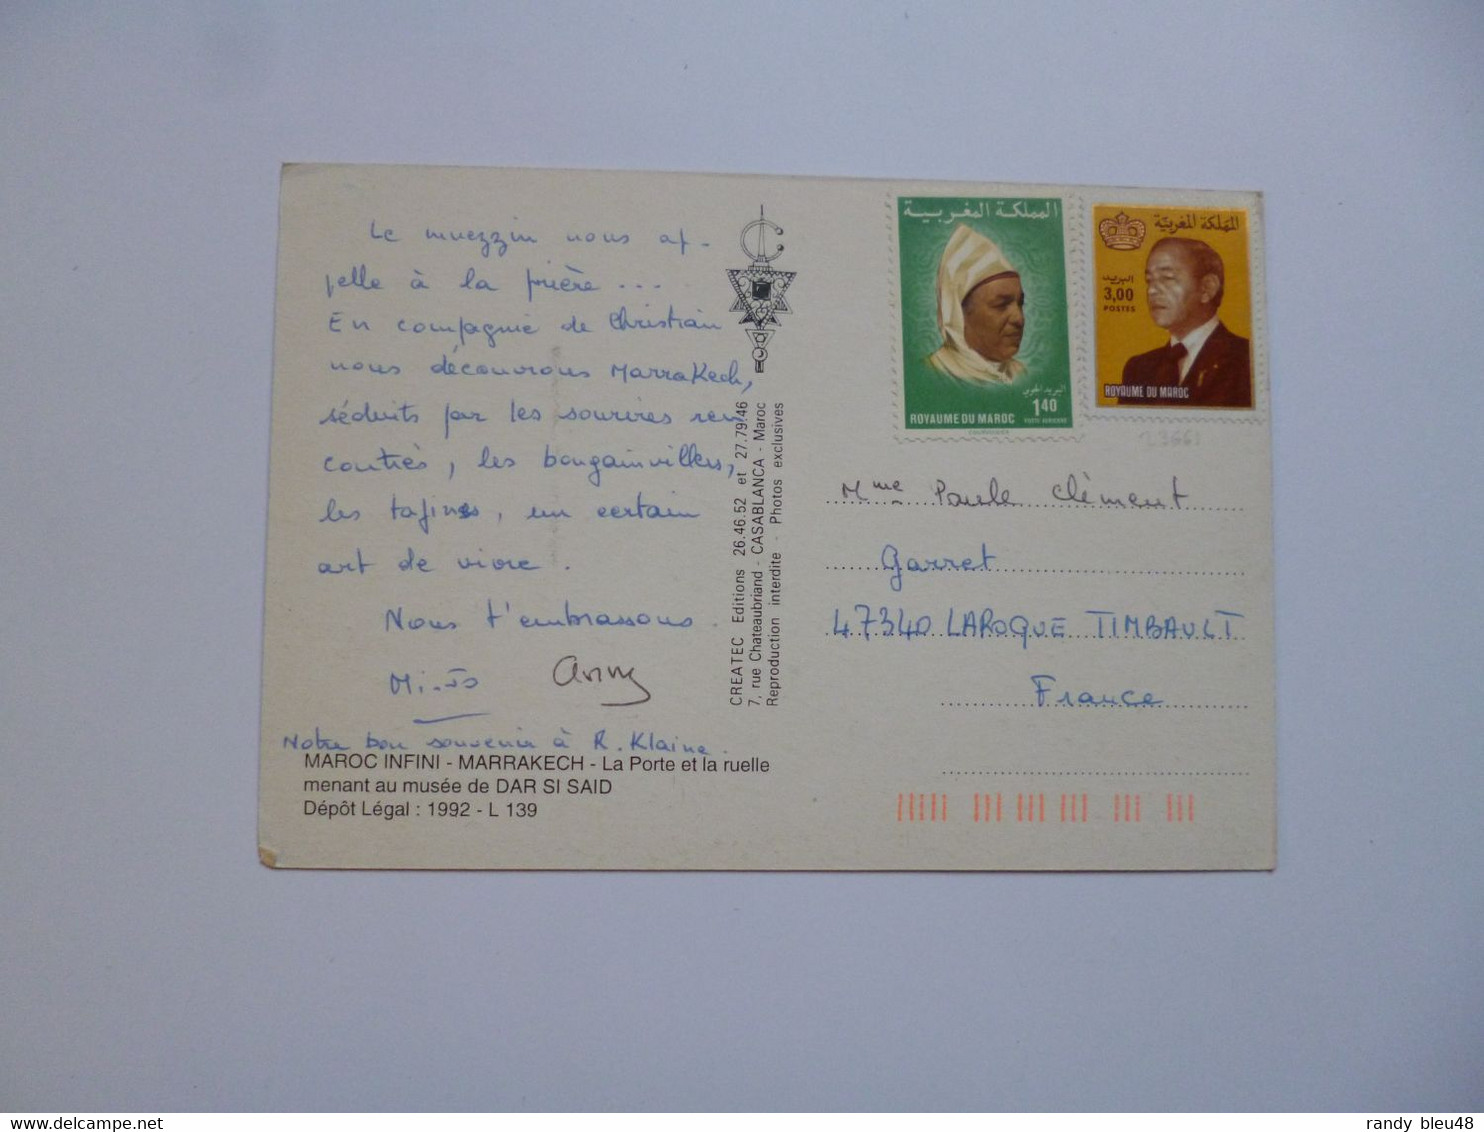 Le muezzin nous ap-
pelle à la prière ...
En compagnie de Christian
nous découvrons Marrakech,
séduits par les sourires ren
contrés, les bougainvillers,
les tajines, un certain
art de vivre.
Nous t'embrassons.
Anny
Notre bon souvenir à R. Klaine.
MAROC INFINI - MARRAKECH - La Porte et la ruelle
menant au musée de DAR SI SAID
Dépôt Légal : 1992 - L 139
CREATEC Editions 26.46.52 et 27.79.46
7, rue Chateaubriand - CASABLANCA - Maroc
Reproduction interdite - Photos exclusives
المملكة المغربية
البريد الجوي
1.40
ROYAUME DU MAROC
POSTE AERIENNE
COURVOISIER
المملكة المغربية
البريد
3,00
POSTES
ROYAUME DU MAROC
Mme Paule Clément
Garret
47340 LAROQUE TIMBAULT
France
randy bleu48